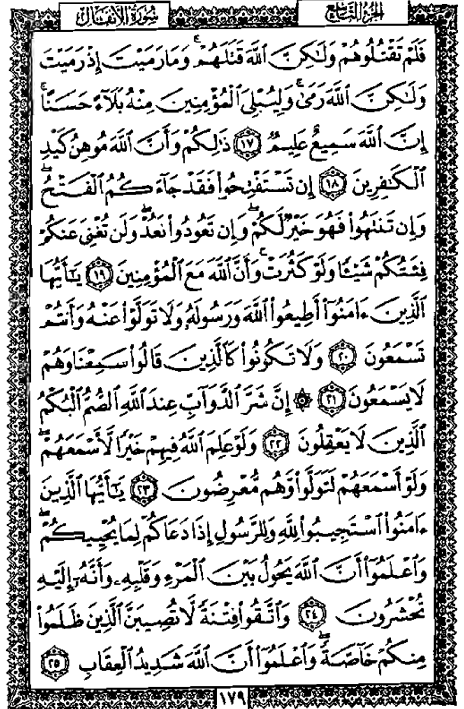 الجزء التاسع
سورة الأنفال
فَلَمْ تَقْتُلُوهُمْ وَلَٰكِنَّ ٱللَّهَ قَتَلَهُمْ ۚ وَمَا رَمَيْتَ إِذْ رَمَيْتَ
وَلَٰكِنَّ ٱللَّهَ رَمَىٰ ۚ وَلِيُبْلِىَ ٱلْمُؤْمِنِينَ مِنْهُ بَلَآءً حَسَنًا ۚ
إِنَّ ٱللَّهَ سَمِيعٌ عَلِيمٌ ١٧ ذَٰلِكُمْ وَأَنَّ ٱللَّهَ مُوهِنُ كَيْدِ
ٱلْكَٰفِرِينَ ١٨ إِن تَسْتَفْتِحُوا۟ فَقَدْ جَآءَكُمُ ٱلْفَتْحُ ۖ
وَإِن تَنتَهُوا۟ فَهُوَ خَيْرٌ لَّكُمْ ۖ وَإِن تَعُودُوا۟ نَعُدْ وَلَن تُغْنِىَ عَنكُمْ
فِئَتُكُمْ شَيْـًٔا وَلَوْ كَثُرَتْ وَأَنَّ ٱللَّهَ مَعَ ٱلْمُؤْمِنِينَ ١٩ يَٰٓأَيُّهَا
ٱلَّذِينَ ءَامَنُوٓا۟ أَطِيعُوا۟ ٱللَّهَ وَرَسُولَهُۥ وَلَا تَوَلَّوْا۟ عَنْهُ وَأَنتُمْ
تَسْمَعُونَ ٢٠ وَلَا تَكُونُوا۟ كَٱلَّذِينَ قَالُوا۟ سَمِعْنَا وَهُمْ
لَا يَسْمَعُونَ ٢١ ۞ إِنَّ شَرَّ ٱلدَّوَآبِّ عِندَ ٱللَّهِ ٱلصُّمُّ ٱلْبُكْمُ
ٱلَّذِينَ لَا يَعْقِلُونَ ٢٢ وَلَوْ عَلِمَ ٱللَّهُ فِيهِمْ خَيْرًا لَّأَسْمَعَهُمْ ۖ
وَلَوْ أَسْمَعَهُمْ لَتَوَلَّوا۟ وَّهُم مُّعْرِضُونَ ٢٣ يَٰٓأَيُّهَا ٱلَّذِينَ
ءَامَنُوا۟ ٱسْتَجِيبُوا۟ لِلَّهِ وَلِلرَّسُولِ إِذَا دَعَاكُمْ لِمَا يُحْيِيكُمْ ۖ
وَٱعْلَمُوٓا۟ أَنَّ ٱللَّهَ يَحُولُ بَيْنَ ٱلْمَرْءِ وَقَلْبِهِۦ وَأَنَّهُۥٓ إِلَيْهِ
تُحْشَرُونَ ٢٤ وَٱتَّقُوا۟ فِتْنَةً لَّا تُصِيبَنَّ ٱلَّذِينَ ظَلَمُوا۟
مِنكُمْ خَآصَّةً ۖ وَٱعْلَمُوٓا۟ أَنَّ ٱللَّهَ شَدِيدُ ٱلْعِقَابِ ٢٥
١٧٩